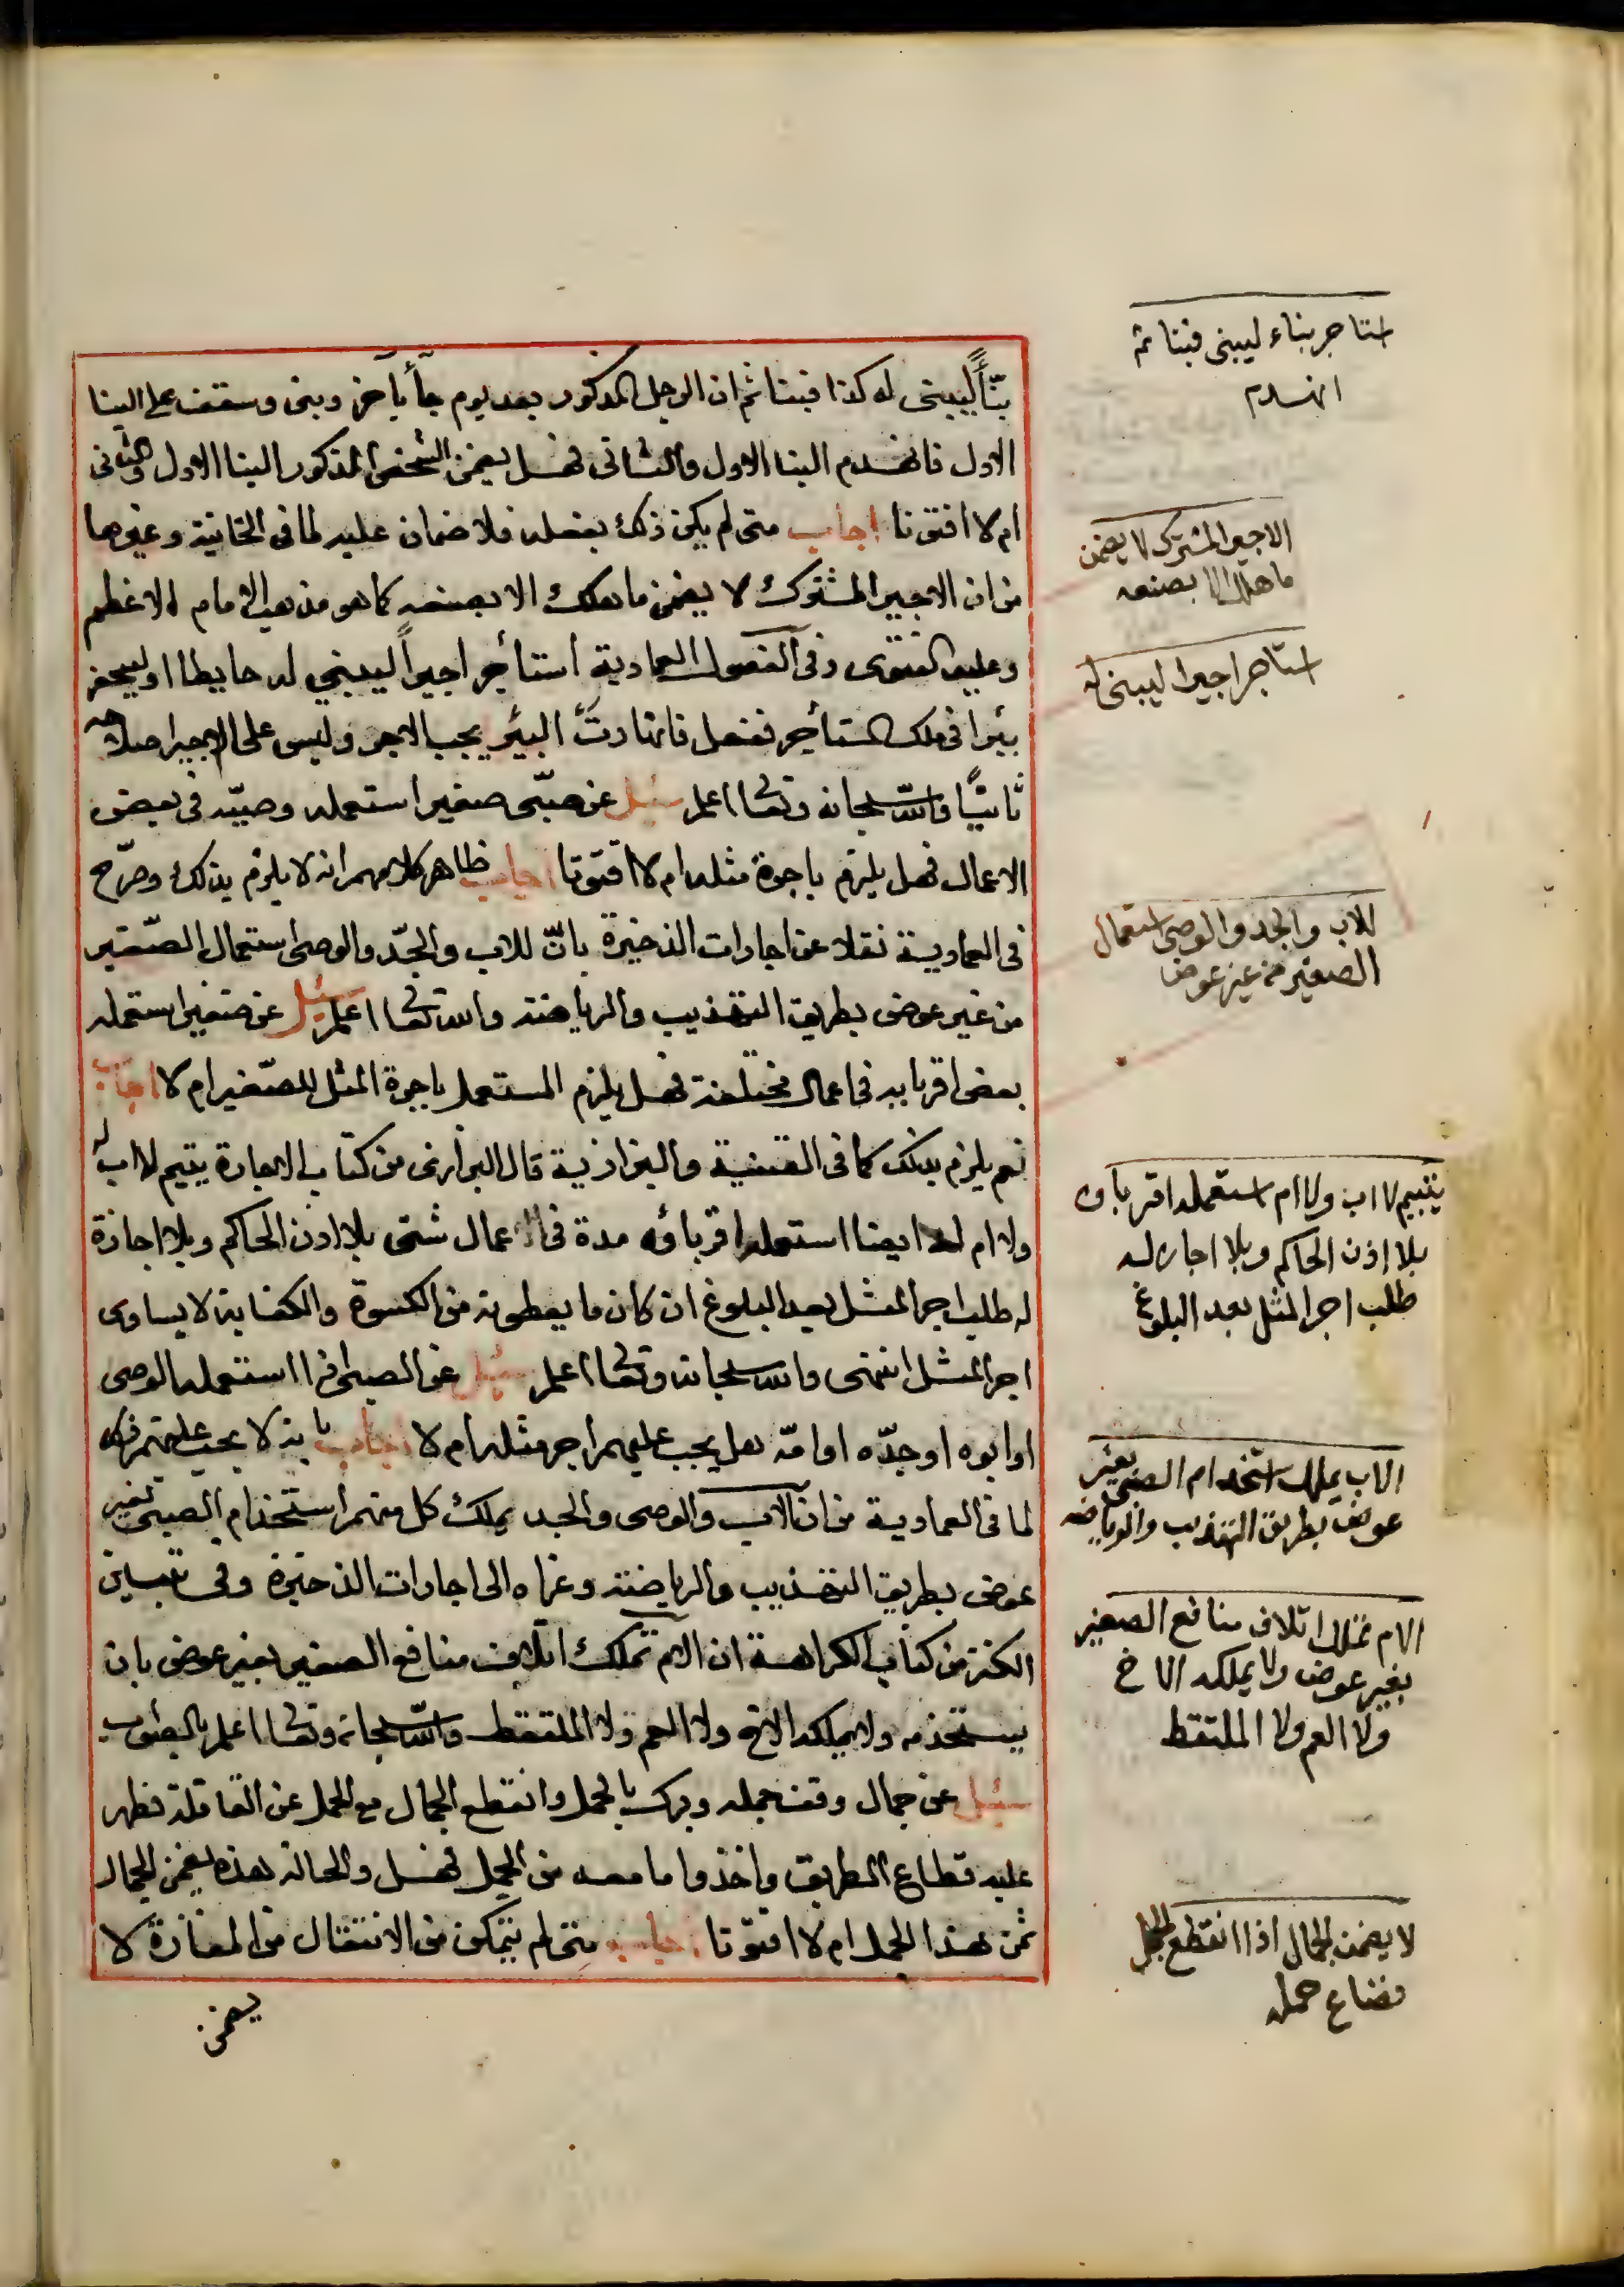 بنّاً ليبني له كذا فبنا ثم ان الرجل المذكور بعد يوم جاأ بآخر وبنى وسقف على البنا
الاول فانهدم البنا الاول والثاني فهل يضمن الشخص المذكور البنا الاول والثاني
ام لا افتونا اجاب متى لم يكن ذلك بفعله فلا ضمان عليه لما في الخانية وغيرها
من ان الاجير المشترك لا يضمن ما هلك الا بصنعه كما هو مذهب الامام الاعظم
وعليه الفتوى وفي الفصول العمادية استأجر اجيراً ليبني له حايطا او ليحفر
بئرا في ملك المستأجر ففعل فانهارتْ البير يجب الاجر وليس على الاجير اصلاحه
ثانيًا والله سبحانه وتعالى اعلم سئل عن صبّى صغير استعمله وصيّه في بعض
الاعمال فهل يلزم باجرة مثله ام لا افتونا اجاب ظاهر كلامهم انه لا يلزم بذلك وصرّح
في العمادية نقلا عن اجارات الذخيرة بانّ للاب والجدّ والوصى استعمال الصّغير
من غير عوض بطريق التهذيب والرياضة والله تعالى اعلم سئل عن صغير استعمله
بعض اقربايه في اعمال مختلفة فهل يلزم المستعمل باجرة المثل للصّغير ام لا اجاب
نعم يلزم بذلك كما في القنية والبزازية قال البزازى من كتاب الاجارة يتيم لا اب له
ولا ام له ايضا استعمله اقرباؤه مدة في اعمال شتى بلا اذن الحاكم وبلا اجازة
له طلب اجر المثل بعد البلوغ ان كان ما يعطونه من الكسوة والكفاية لا يساوى
اجر المثل انتهى والله سبحانه وتعالى اعلم سئل عن الصبى اذا استعمله الوصى
او ابوه او جدّه او امّه هل يجب عليهم اجر مثله ام لا اجاب بانه لا يجب عليهم ذلك
لما في العمادية من ان الاب والوصى والجد يملك كل منهم استخدام الصبى بغير
عوض بطريق التهذيب والرياضة وعزاه الى اجارات الذخيرة وفي تبيين
الكنز من كتاب الكراهة ان الام تملك اتلاف منافع الصغير بغير عوض بان
يستخدمه ولا يملكه الاخ ولا العم ولا الملتقط والله سبحانه وتعالى اعلم بالصواب
سئل عن جمال وقف جمله وبرك بالحمل وانقطع الجمال مع الحمل عن القافلة فظهر
عليه قطاع الطريق واخذوا ما معه من الحمل فهل والحالة هذه يضمن الجمال
ثمن هذا الحمل ام لا افتونا اجاب متى لم يتمكن من الانتقال من المفازة لا
يضمن
استاجر بناء ليبني فبنا ثم
انهدم
الاجير المشترك لا يضمن
ما هلك الا بصنعه
استاجر اجيرا ليبنى له
للاب والجد والوصى استعمال
الصغير من غير عوض
يتيم لا اب ولا ام استعمله اقرباوه
بلا اذن الحاكم وبلا اجارة له
طلب اجر المثل بعد البلوغ
الاب يملك استخدام الصبى بغير
عوض بطريق التهذيب والرياضه
الام تملك اتلاف منافع الصغير
بغير عوض ولا يملكه الاخ
ولا العم ولا الملتقط
لا يضمن الجمال اذا انقطع الجمل
فضاع حمله